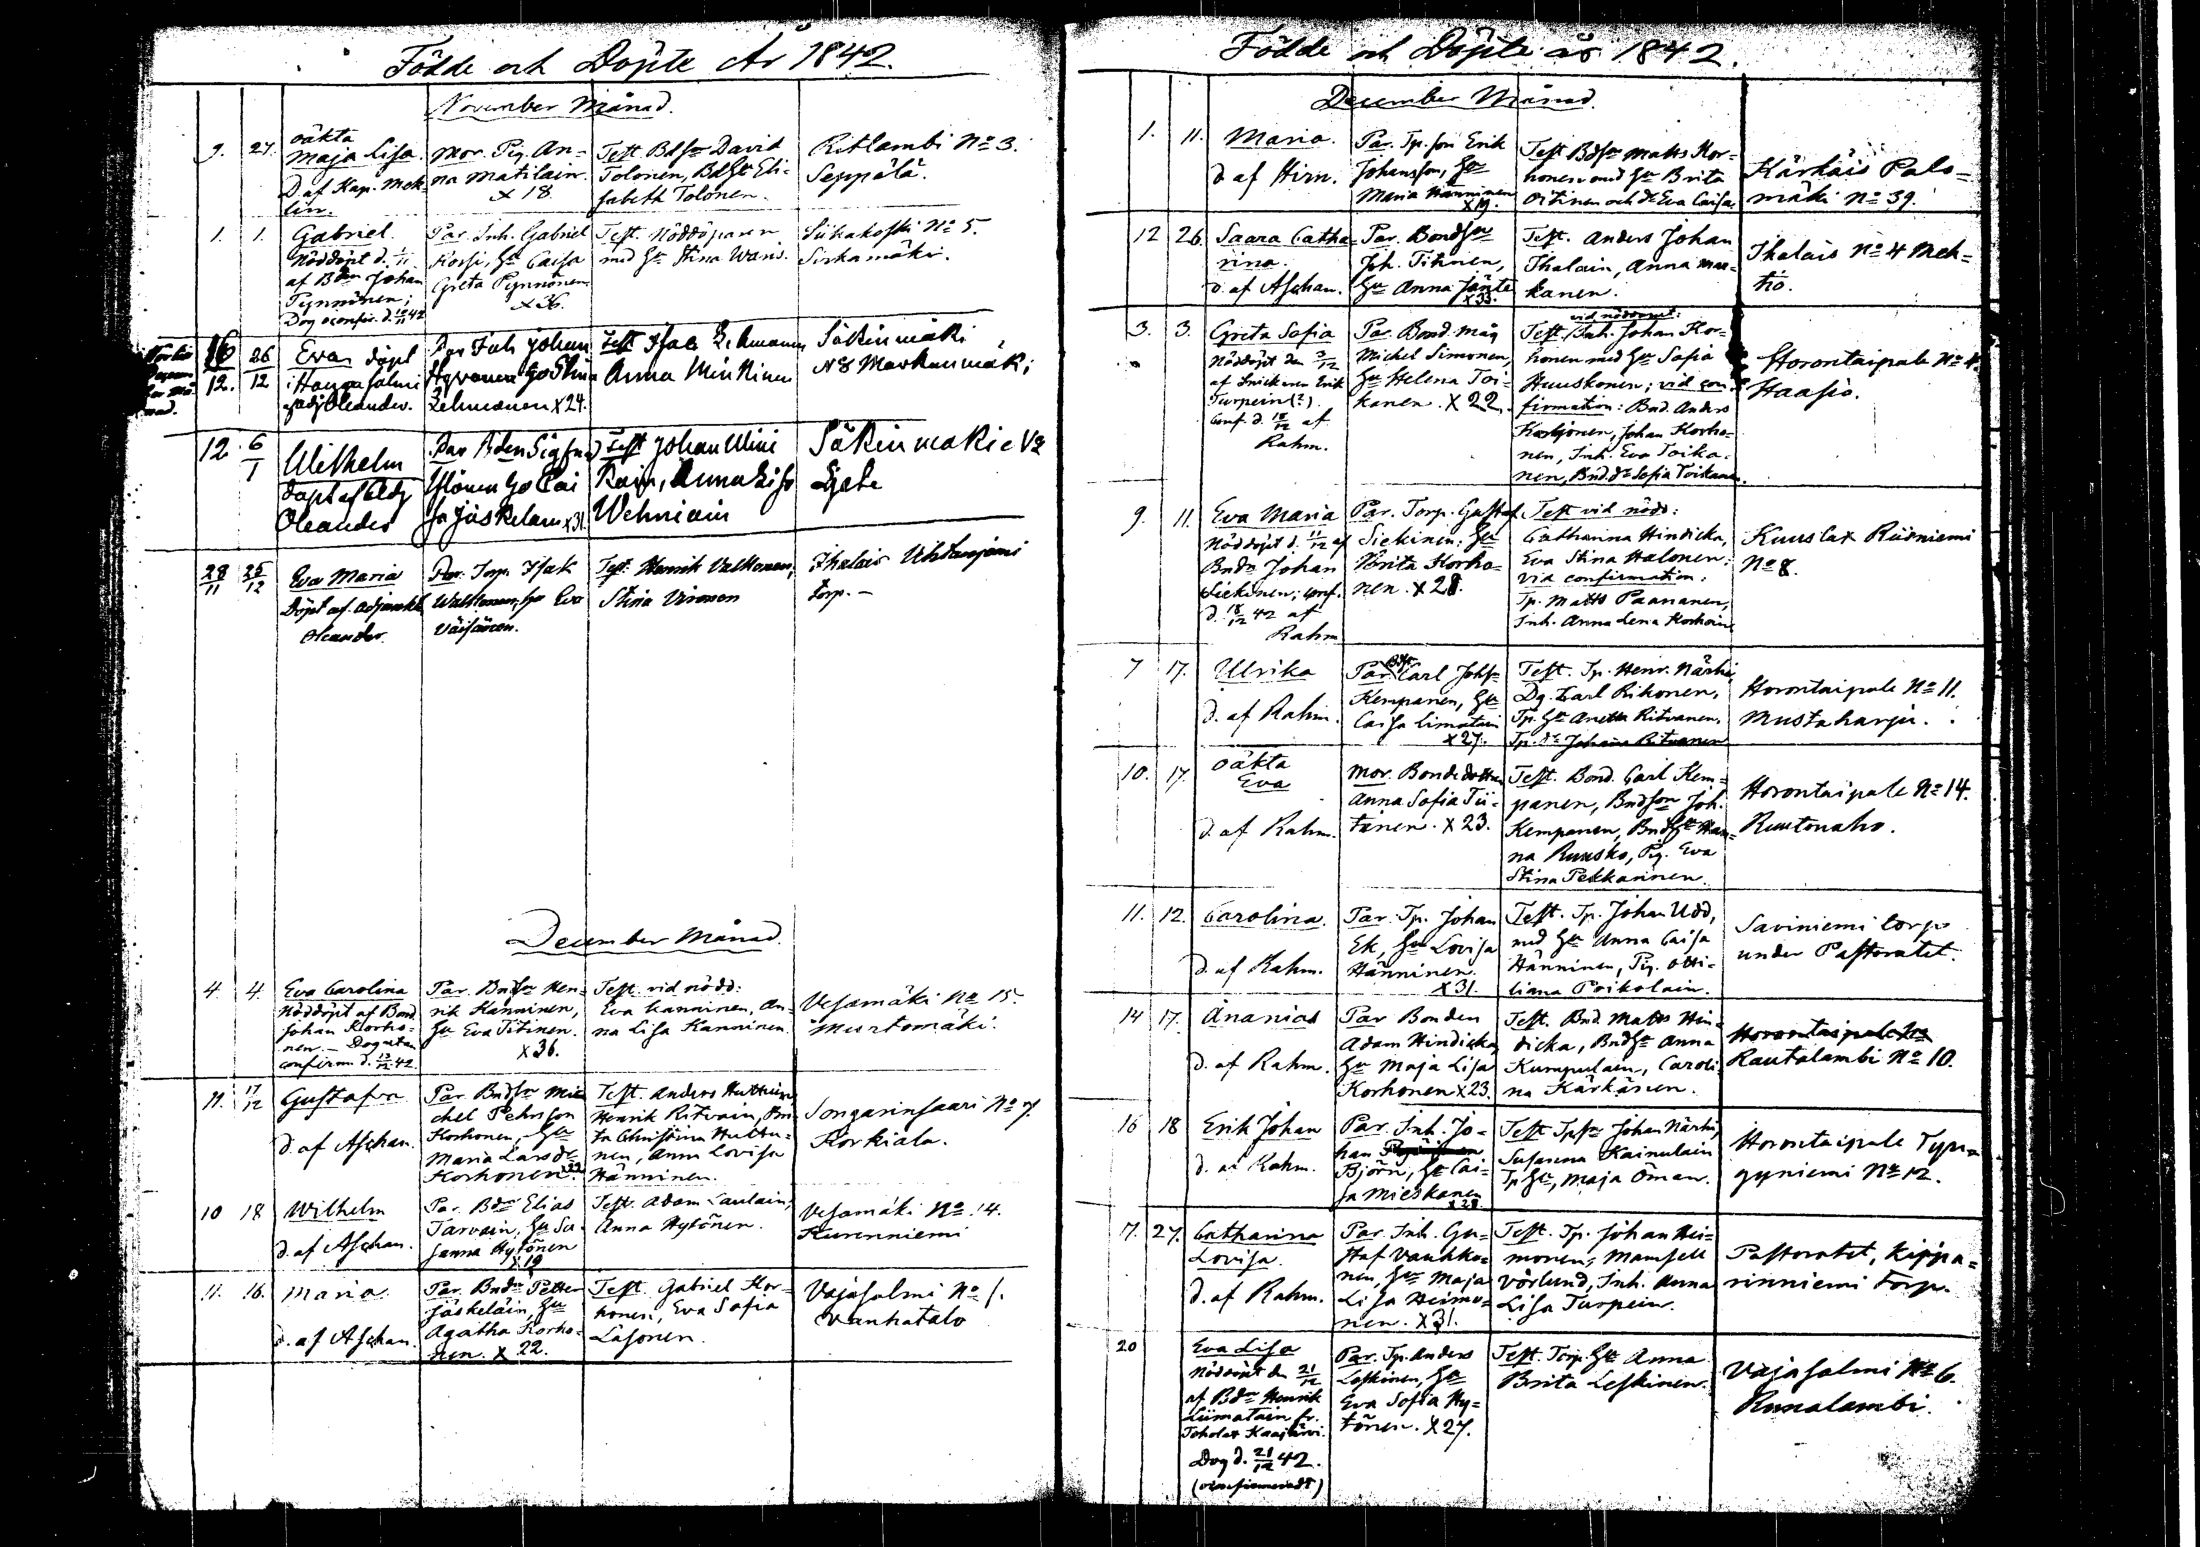 Födde och Döpte År 1842.
November Månad.
9. 27.
oäkta
Maja Lisa
D af Kap. Mek-
lin.
Mor. Pig. An-
na Matilain
x 18.
Test Bdsn David
Tolonen, Bdhu Eli-
sabeth Tolonen.
Ritlambi No 3.
Seppälä.
1. 1.
Gabriel.
Nöddöpt d. 1/11
af Bdn Johan
Pynnönen;
Dog oconfir. d. 10/11 42
Par. Inh. Gabriel
Korsi, Hu Caisa
Greta Pynnönen
x 36.
Test. Nöddöparen
med Hu Stina Waris.
Siikakoski No 5.
Sirkamäki.
16/12. 26/12
Eva döpt
i Hangasalmi
af adj Oleander.
Par Inh Johan
Hyvönen Ho Stina
Lehmonen x 24.
Test Isac Lehmonen
Anna Minkinen
Säkinmäki
N 8 Markunmäki
12. 6/1
Wilhelm
döpt af Adj
Oleander
Par Bden Sigfrid
Ylönen Ho Cai
sa Jäskelain x 31.
Test Johan Mini
Kain, Anna Lisa
Wehniain
Säkinmäki
28/11 25/12
Eva Maria
Döpt af Adjunkt
Oleander.
Par. Torp. Isak
Walkonen, ho Eva
Väisänen.
Test. Henrik Valkonen,
Stina Vironen
Ihalais
torp. –
December Månad.
4. 4.
Eva Carolina
Nöddöpt af Bond
Johan Korho-
nen. – Dog utan
confirm d. 13/12 42
Par. Bndsn Hen-
rik Kanninen,
Hu Eva Titinen.
x 36.
Test. vid nödd:
Eva Kanninen, An-
na Lisa Kanninen
Vesamäki No 15.
Murtomäki.
11. 17/12
Gustafva
d. af Aschan.
Par. Bndsn Mi-
chel Pehrsson
Korhonen, Hu
Maria Larsdr
Korhonen x 22.
Test. Anders Huttuinen
Henrik Ritvain,
Christina Huttu-
nen, Anna Lovisa
Hänninen.
Songarinsaari No 7.
Korkiala.
10 18
Wilhelm
d. af Aschan.
Par. Bdn Elias
Tarvain, Hu Su-
sanna Hytönen
x 19
Test. Adam Laulain,
Anna Hytönen.
Vesamäki No. 14.
Kurenniemi
11. 16.
Maria.
d. af Aschan.
Par. Bndn Petter
Jäskeläin, Hu
Agatha Korho-
nen. x 22.
Test. Gabriel Kor-
honen, Eva Sofia
Läsonen.
Vajasalmi No 1.
Vanhatalo
Födde och Döpte år 1842.
December Månad.
1. 11.
Maria.
d af Hirn.
Par. Tp. son Erik
Johansson, Hu
Maria Hänninen
x 19.
Test Bdsn Matts Kor-
honen med Hu Brita
Oitinen och dr Eva Caisa.
Kärkäis Palo-
mäki No 39.
12 26.
Saara Catha-
rina.
d. af Aschan.
Par. Bondson
Joh. Titinen,
Hu Anna Jänte
x 33.
Test. Anders Johan
Thalain, Anna Mar-
kanen.
Ihalais No 4 Meh-
tiö.
3. 3.
Greta Sofia
Nöddöpt den 3/12
af Snickaren Erik
Turpein (?).
Conf. d. 18/12 af
Rahm.
Par. Bond. Måg
Michel Simonen,
Hu Helena Toi-
kanen. x 22.
vid nöddopet:
Test. Inh. Johan Kor-
honen med Hu Sofia
Huuskonen; vid con-
firmation: Bnd. Anders
Karkjonen, Johan Korho-
nen, Inh. Eva Toika-
nen, Bnd.dr Sofia Toikanen.
Horontaipale No 4.
Haasio.
9. 11.
Eva Maria
Nöddöpt d. 11/12 af
Bndn Johan
Siekinen; conf.
d. 18/12 42 af
Rahm
Par. Torp. Gustaf
Siekinen; Hu
Brita Korho-
nen. x 28.
Test vid nödd:
Catharina Hindicka,
Eva Stina Halonen;
vid confirmation:
Tp. Matts Paananen,
Inh. Anna Lena Korhoin
Kuuslax Riisniemi
No 8.
7 17.
Ulrika
d. af Rahm.
Par. Bdsn Carl Johsn
Kempanen, Hu
Caisa Limatain
x 27.
Test. Tp. Henr. Närhi,
Dg. Karl Rikonen,
Tp. Hu Anetta Ritvanen,
Tp. dr Johanna Ritvanen
Horontaipale No 11.
Mustaharju.
10. 17.
oäkta
Eva
d. af Rahm.
Mor. Bondedottren
Anna Sofia Tii-
tinen. x 23.
Test. Bond. Carl Kem-
panen, Bndson Joh.
Kempanen, Bndhu Han-
na Ruusko, Pig. Eva
Stina Pekkarinen.
Horontaipale No 14.
Ruutonaho.
11. 12.
Carolina.
d. af Rahm.
Par. Tp. Johan
Ek, Hu Lovisa
Hänninen.
x 31.
Test. Tp. Johan Udd,
med Hu Anna Caisa
Hänninen, Pig. Otti-
liana Poikolain.
Saviniemi torp
under Pastoratet.
14 17.
Ananias
d. af Rahm.
Par Bonden
Adam Hindicka,
Hu Maja Lisa
Korhonen x 23.
Test. Bnd. Matts Hin-
dicka, Bndhu Anna
Kumpulain, Caroli-
na Kärkäinen.
Horontaipale No
Rautalambi No 10.
16 18
Erik Johan
d. af Rahm.
Par. Inh. Jo-
han
Björn, Hu Cai-
sa Mieskanen
x 28.
Test Tpsn Johan Närhi,
Susanna Kainulain
Tphu, Maja Öman.
Horontaipale Typ-
pyniemi No 12.
17. 27.
Catharina
Lovisa.
d. af Rahm.
Par. Inh. Gu-
staf Vauhko-
nen, Hu Maja
Lisa Heimo-
nen. x 31.
Test. Tp. Johan Hei-
monen, Mamsell
Vörlund, Inh. Anna
Lisa Turpein.
Pastoratet, Kippa-
rinniemi Torp.
20
Eva Lisa
Nöddöpt den 21/12
af Bdn Henrik
Liimatain fr.
Toholax Kaajärvi.
Dog d. 21/12 42.
(oconfirmeradt)
Par. Tp. Anders
Leskinen, Hu
Eva Sofia Hy-
tönen. x 27.
Test. Torp. Hu Anna
Brita Leskinen.
Vajasalmi No 6.
Runalambi.